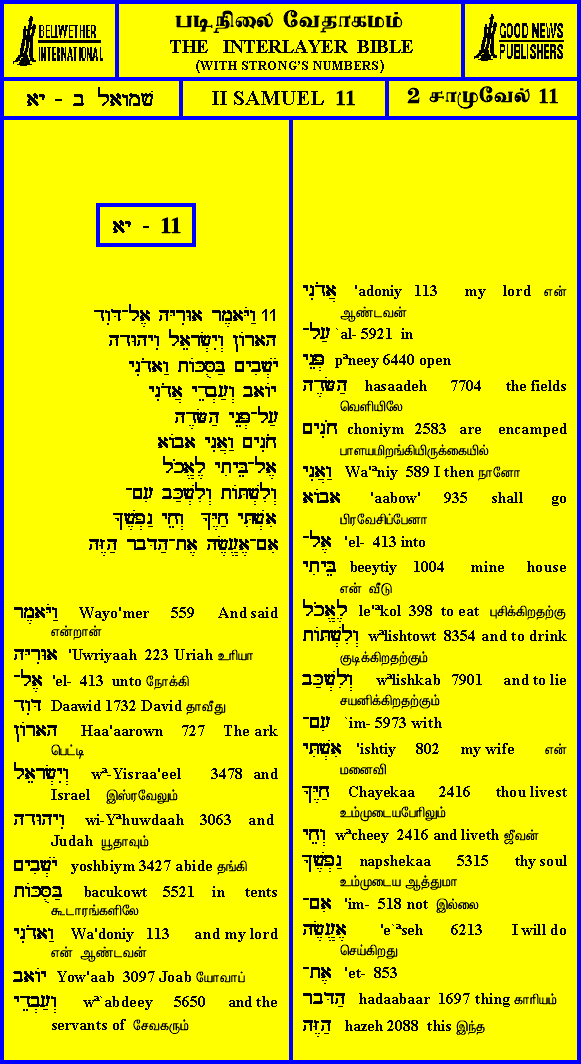 BELLWETHER
INTERNATIONAL
படிநிலை வேதாகமம்
THE INTERLAYER BIBLE
(WITH STRONG'S NUMBERS)
GOOD NEWS
PUBLISHERS
שמואל ב - יא
II SAMUEL 11
2 சாமுவேல் 11
יא - 11
11 וַיֹּאמֶר אוּרִיָּה אֶל־דָּוִד
הָאָרוֹן וְיִשְׂרָאֵל וִיהוּדָה
יֹשְׁבִים בַּסֻּכּוֹת וַאדֹנִי
יוֹאָב וְעַבְדֵי אֲדֹנִי
עַל־פְּנֵי הַשָּׂדֶה
חֹנִים וַאֲנִי אָבוֹא
אֶל־בֵּיתִי לֶאֱכֹל
וְלִשְׁתּוֹת וְלִשְׁכַּב עִם־
אִשְׁתִּי חַיֶּךָ וְחֵי נַפְשֶׁךָ
אִם־אֶעֱשֶׂה אֶת־הַדָּבָר הַזֶּה
וַיֹּאמֶר Wayo'mer 559 And said
என்றான்
אוּרִיָּה 'Uwriyaah 223 Uriah உரியா
אֶל־ 'el- 413 unto நோக்கி
דָּוִד Daawid 1732 David தாவீது
הָאָרוֹן Haa'aarown 727 The ark
பெட்டி
וְיִשְׂרָאֵל wª-Yisraa'eel 3478 and
Israel இஸ்ரவேலும்
וִיהוּדָה wi-Yªhuwdaah 3063 and
Judah யூதாவும்
יֹשְׁבִים yoshbiym 3427 abide தங்கி
בַּסֻּכּוֹת bacukowt 5521 in tents
கூடாரங்களிலே
וַאדֹנִי Wa'doniy 113 and my lord
என் ஆண்டவன்
יוֹאָב Yow'aab 3097 Joab யோவாப்
וְעַבְדֵי wª`abdeey 5650 and the
servants of சேவகரும்
אֲדֹנִי 'adoniy 113 my lord என்
ஆண்டவன்
עַל־ `al- 5921 in
פְּנֵי pªneey 6440 open
הַשָּׂדֶה hasaadeh 7704 the fields
வெளியிலே
חֹנִים choniym 2583 are encamped
பாளயமிறங்கியிருக்கையில்
וַאֲנִי Wa'ªniy 589 I then நானோ
אָבוֹא 'aabow' 935 shall go
பிரவேசிப்பேனா
אֶל־ 'el- 413 into
בֵּיתִי beeytiy 1004 mine house
என் வீடு
לֶאֱכֹל le'ªkol 398 to eat புசிக்கிறதற்கு
וְלִשְׁתּוֹת wªlishtowt 8354 and to drink
குடிக்கிறதற்கும்
וְלִשְׁכַּב wªlishkab 7901 and to lie
சயனிக்கிறதற்கும்
עִם־ `im- 5973 with
אִשְׁתִּי 'ishtiy 802 my wife என்
மனைவி
חַיֶּךָ Chayekaa 2416 thou livest
உம்முடையபேரிலும்
וְחֵי wªcheey 2416 and liveth ஜீவன்
נַפְשֶׁךָ napshekaa 5315 thy soul
உம்முடைய ஆத்துமா
אִם־ 'im- 518 not இல்லை
אֶעֱשֶׂה 'e`ªseh 6213 I will do
செய்கிறது
אֶת־ 'et- 853
הַדָּבָר hadaabaar 1697 thing காரியம்
הַזֶּה hazeh 2088 this இந்த